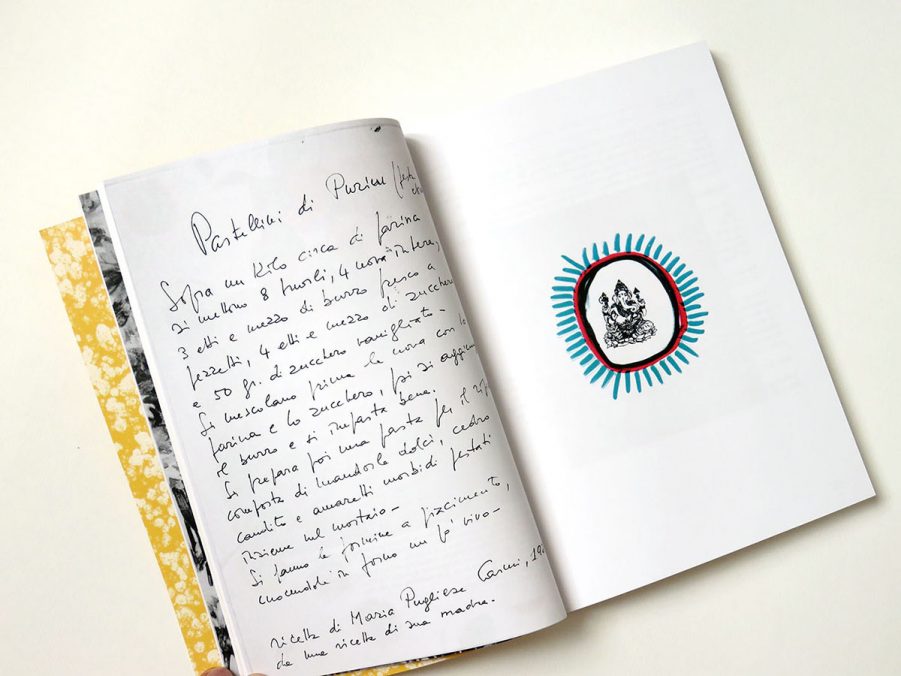 Pastellini di Purim (festa
Sopra un kilo circa di farina
si mettono 8 tuorli, 4 uova intere,
3 etti e mezzo di burro fresco a
pezzetti, 4 etti e mezzo di zucchero
e 50 gr. di zucchero vanigliato -
Si mescolano prima le uova con la
farina e lo zucchero, poi si aggiun
il burro e si impasta bene.
Si prepara poi una pasta per il rip
composta di mandorle dolci, cedro
candito e amaretti morbidi pestati
insieme nel mortaio -
Si fanno le formine a piacimento,
cuocendole in forno un po' vivo -
ricetta di Maria Pugliese
da una ricetta di sua madre.